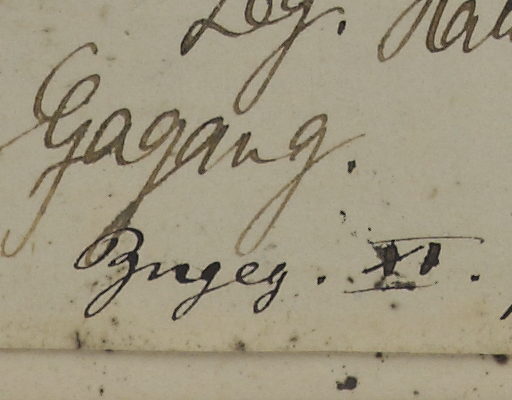 Leg.
Gagang.
Bngeg. XI.